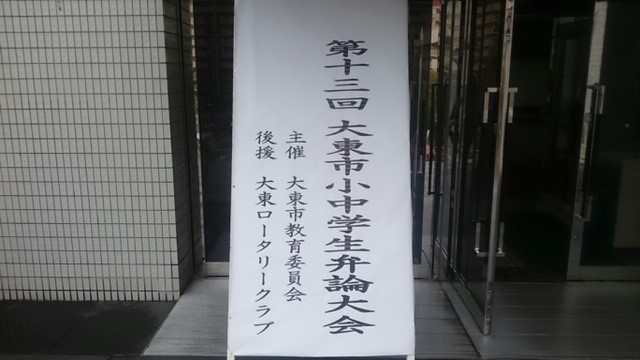 第十三回 大東市小中学生弁論大会
主催 大東市教育委員会
後援 大東ロータリークラブ